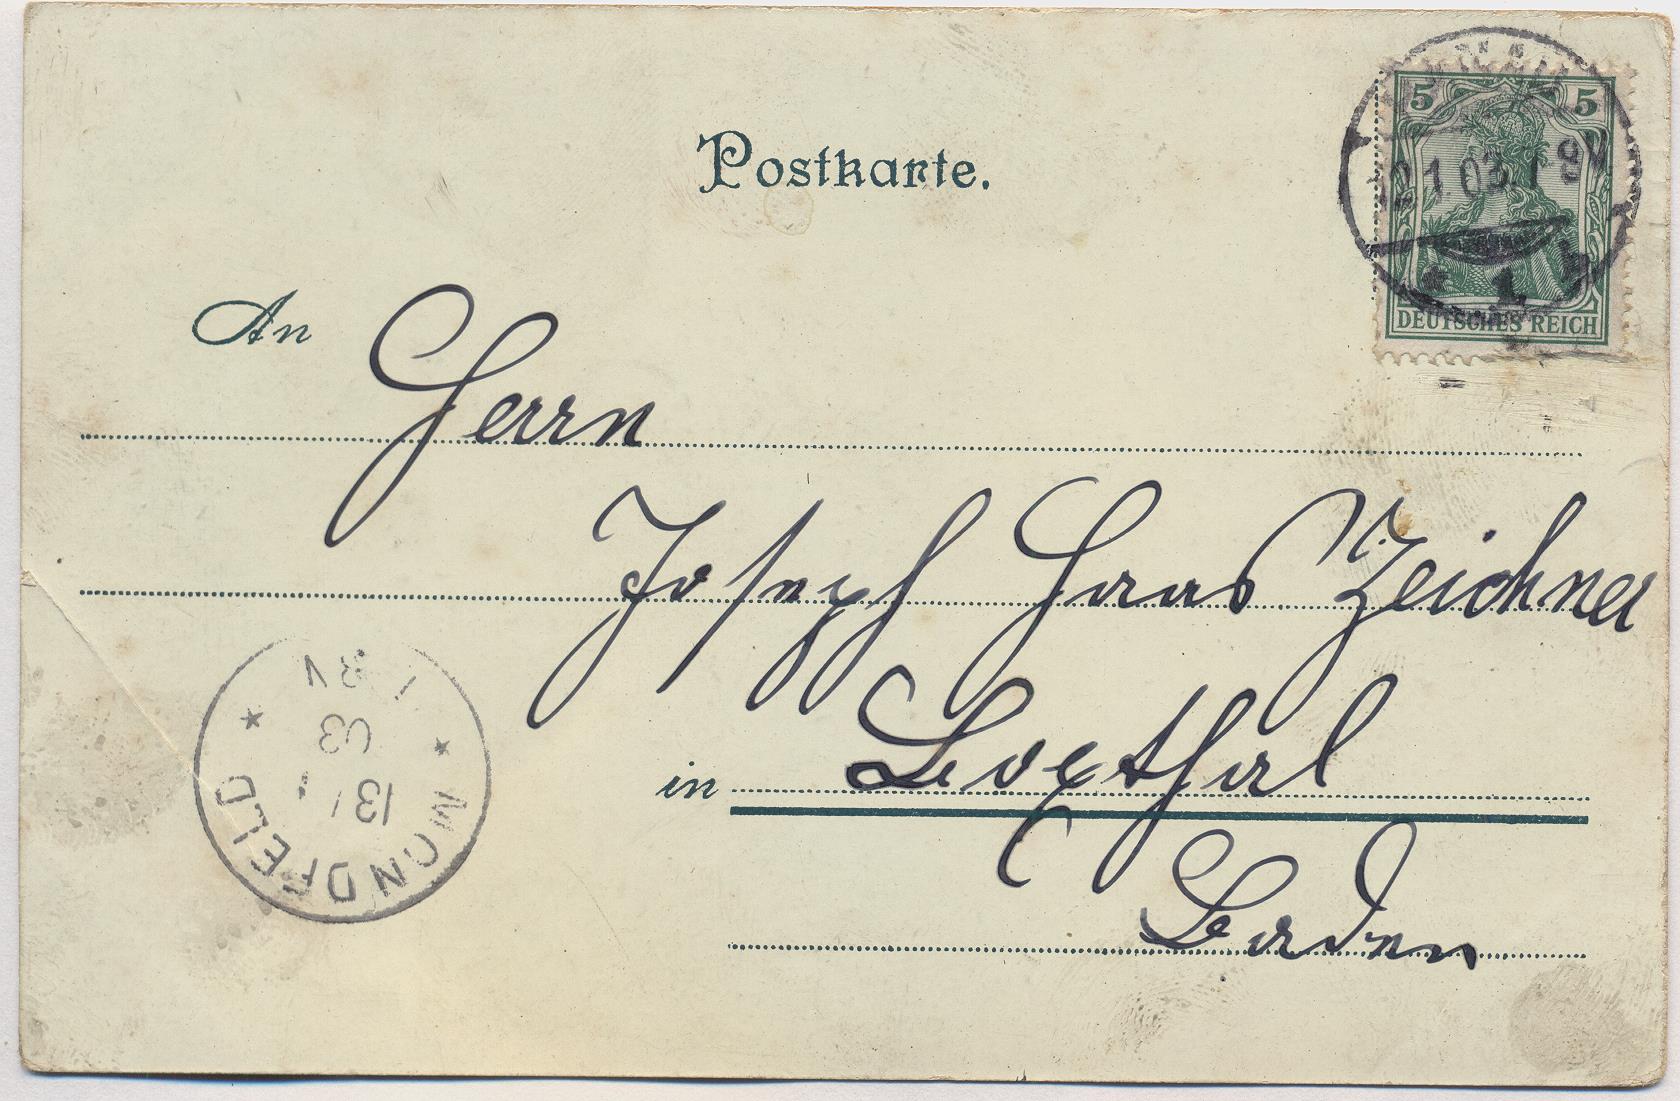 Postkarte.
5 5
12.1.03. 1 8V
* 1 b
DEUTSCHES REICH
An Herrn
Joseph Haas Zeichner
in Boxthal
Baden
MONDFELD
13 1
03
1 8V